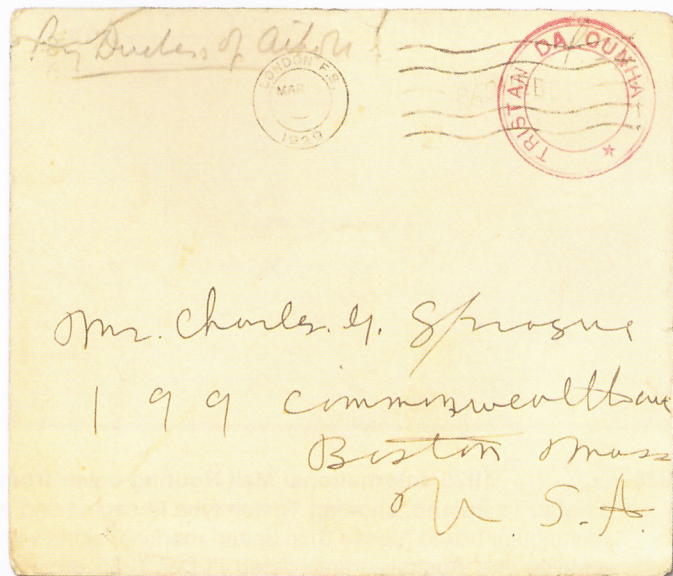 By Duchess of Atholl
LONDON F.S.
MAR
1929
TRISTAN DA CUNHA
Mr. Charles. G. Sprague
199 Commonwealth ave
Boston Mass
U. S. A.